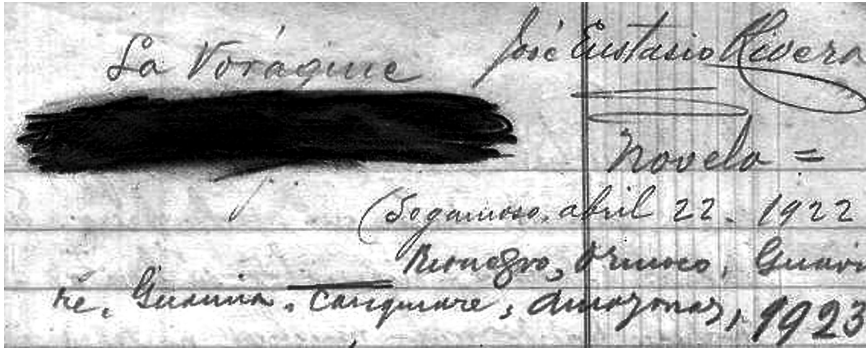 La Vorágine
José Eustasio Rivera
Novela =
(Sogamoso, abril 22. 1922
Rionegro, Orinoco, Guaviare, Guainía, Casiquiare, Amazonas, 1923